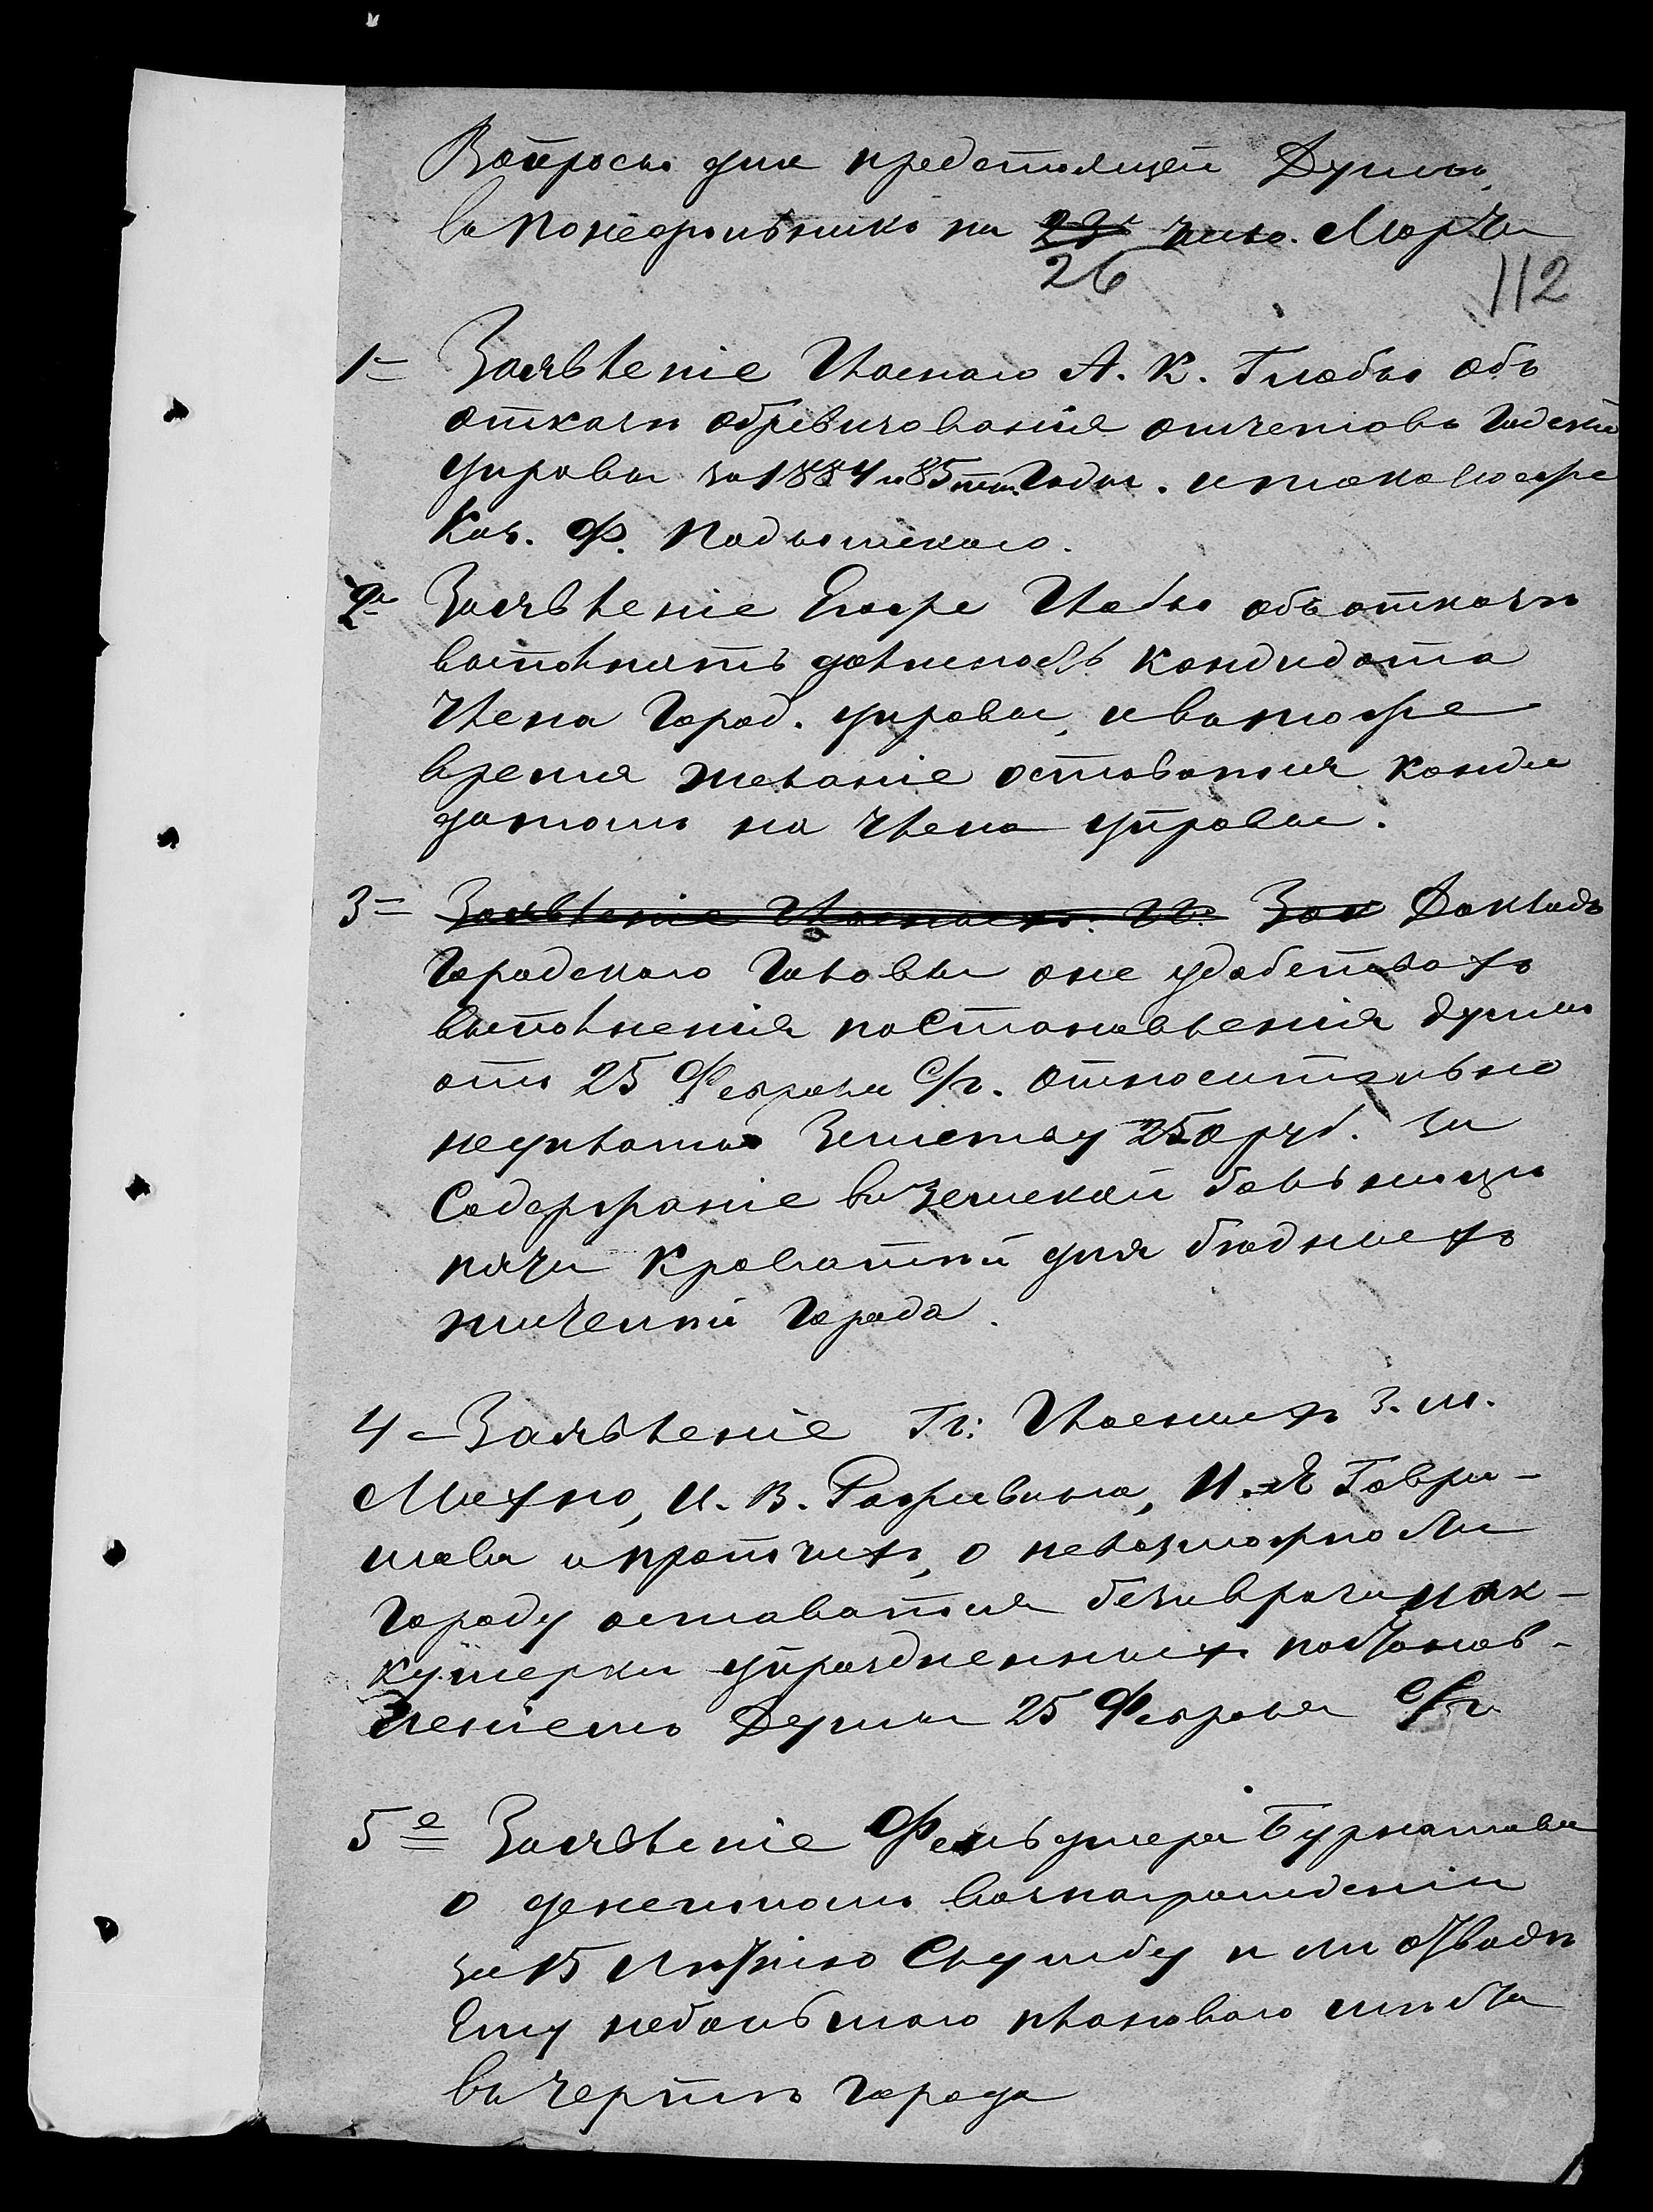 Вопросы для предстоящей Думы,
въ понедѣльникъ на 23 число. Марта
26
112
1- Заявленіе Гласнаго А. К. Глобы объ
отказѣ обревизованія отчетовъ Годской
управы за 1884 и 85 Годы. и также
Каз. Ф.
2- Заявленіе Егора Глобы объ отказѣ
выполнять должность кандидата
Члена Город. управы, и въ тоже
время желаніе оставаться канди
датомъ на члена управы.
3= Заявленіе Гласныхъ. Зая Докладъ
Городскаго Головы о не удобствахъ
выполненія постановленія думы
отъ 25 Февраля с/г. относительно
неуплаты Земству 250 руб. за
Содержаніе въ Земской больницѣ
пяти кроватей для бѣдныхъ
жителей города.
4 - Заявленіе Гг: Гласныхъ З. М.
Михно, И. В. И. Я Гаври-
лова и протчихъ, о невозможности
Городу оставаться безъ врача и ак-
кушерки упраздненныхъ постанов-
леніемъ Думы 25 Февраля с/г
5е Заявленіе Фельдшера Бурнатова
о денежномъ вознагражденіи
за 15 лѣтнюю Службу и ли отводѣ
Ему небольшаго плановаго мѣста
въ чертѣ города